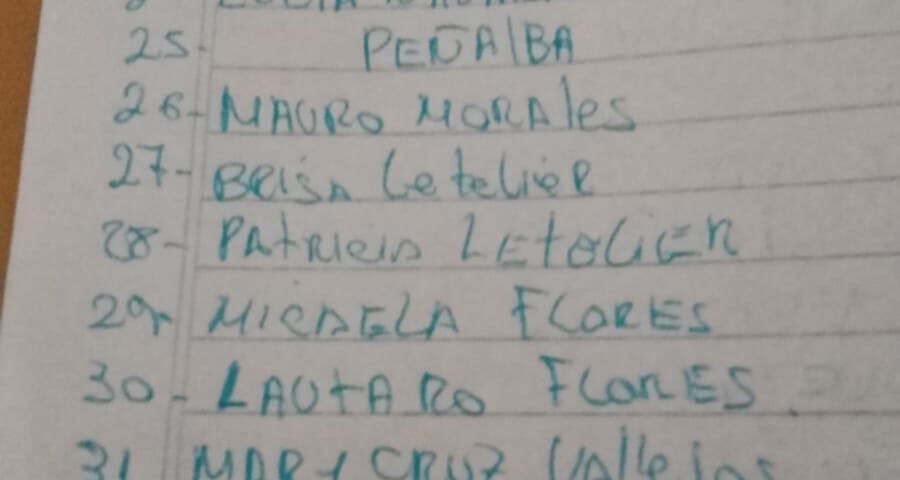 25- PEÑAlBA
26- MAURO MORAles
27- BRisA Letelier
28- PAtRiciA LEtELiER
29- MICAELA FLORES
30- LAUtARO FLORES
31 MARY CRUZ Vallejos